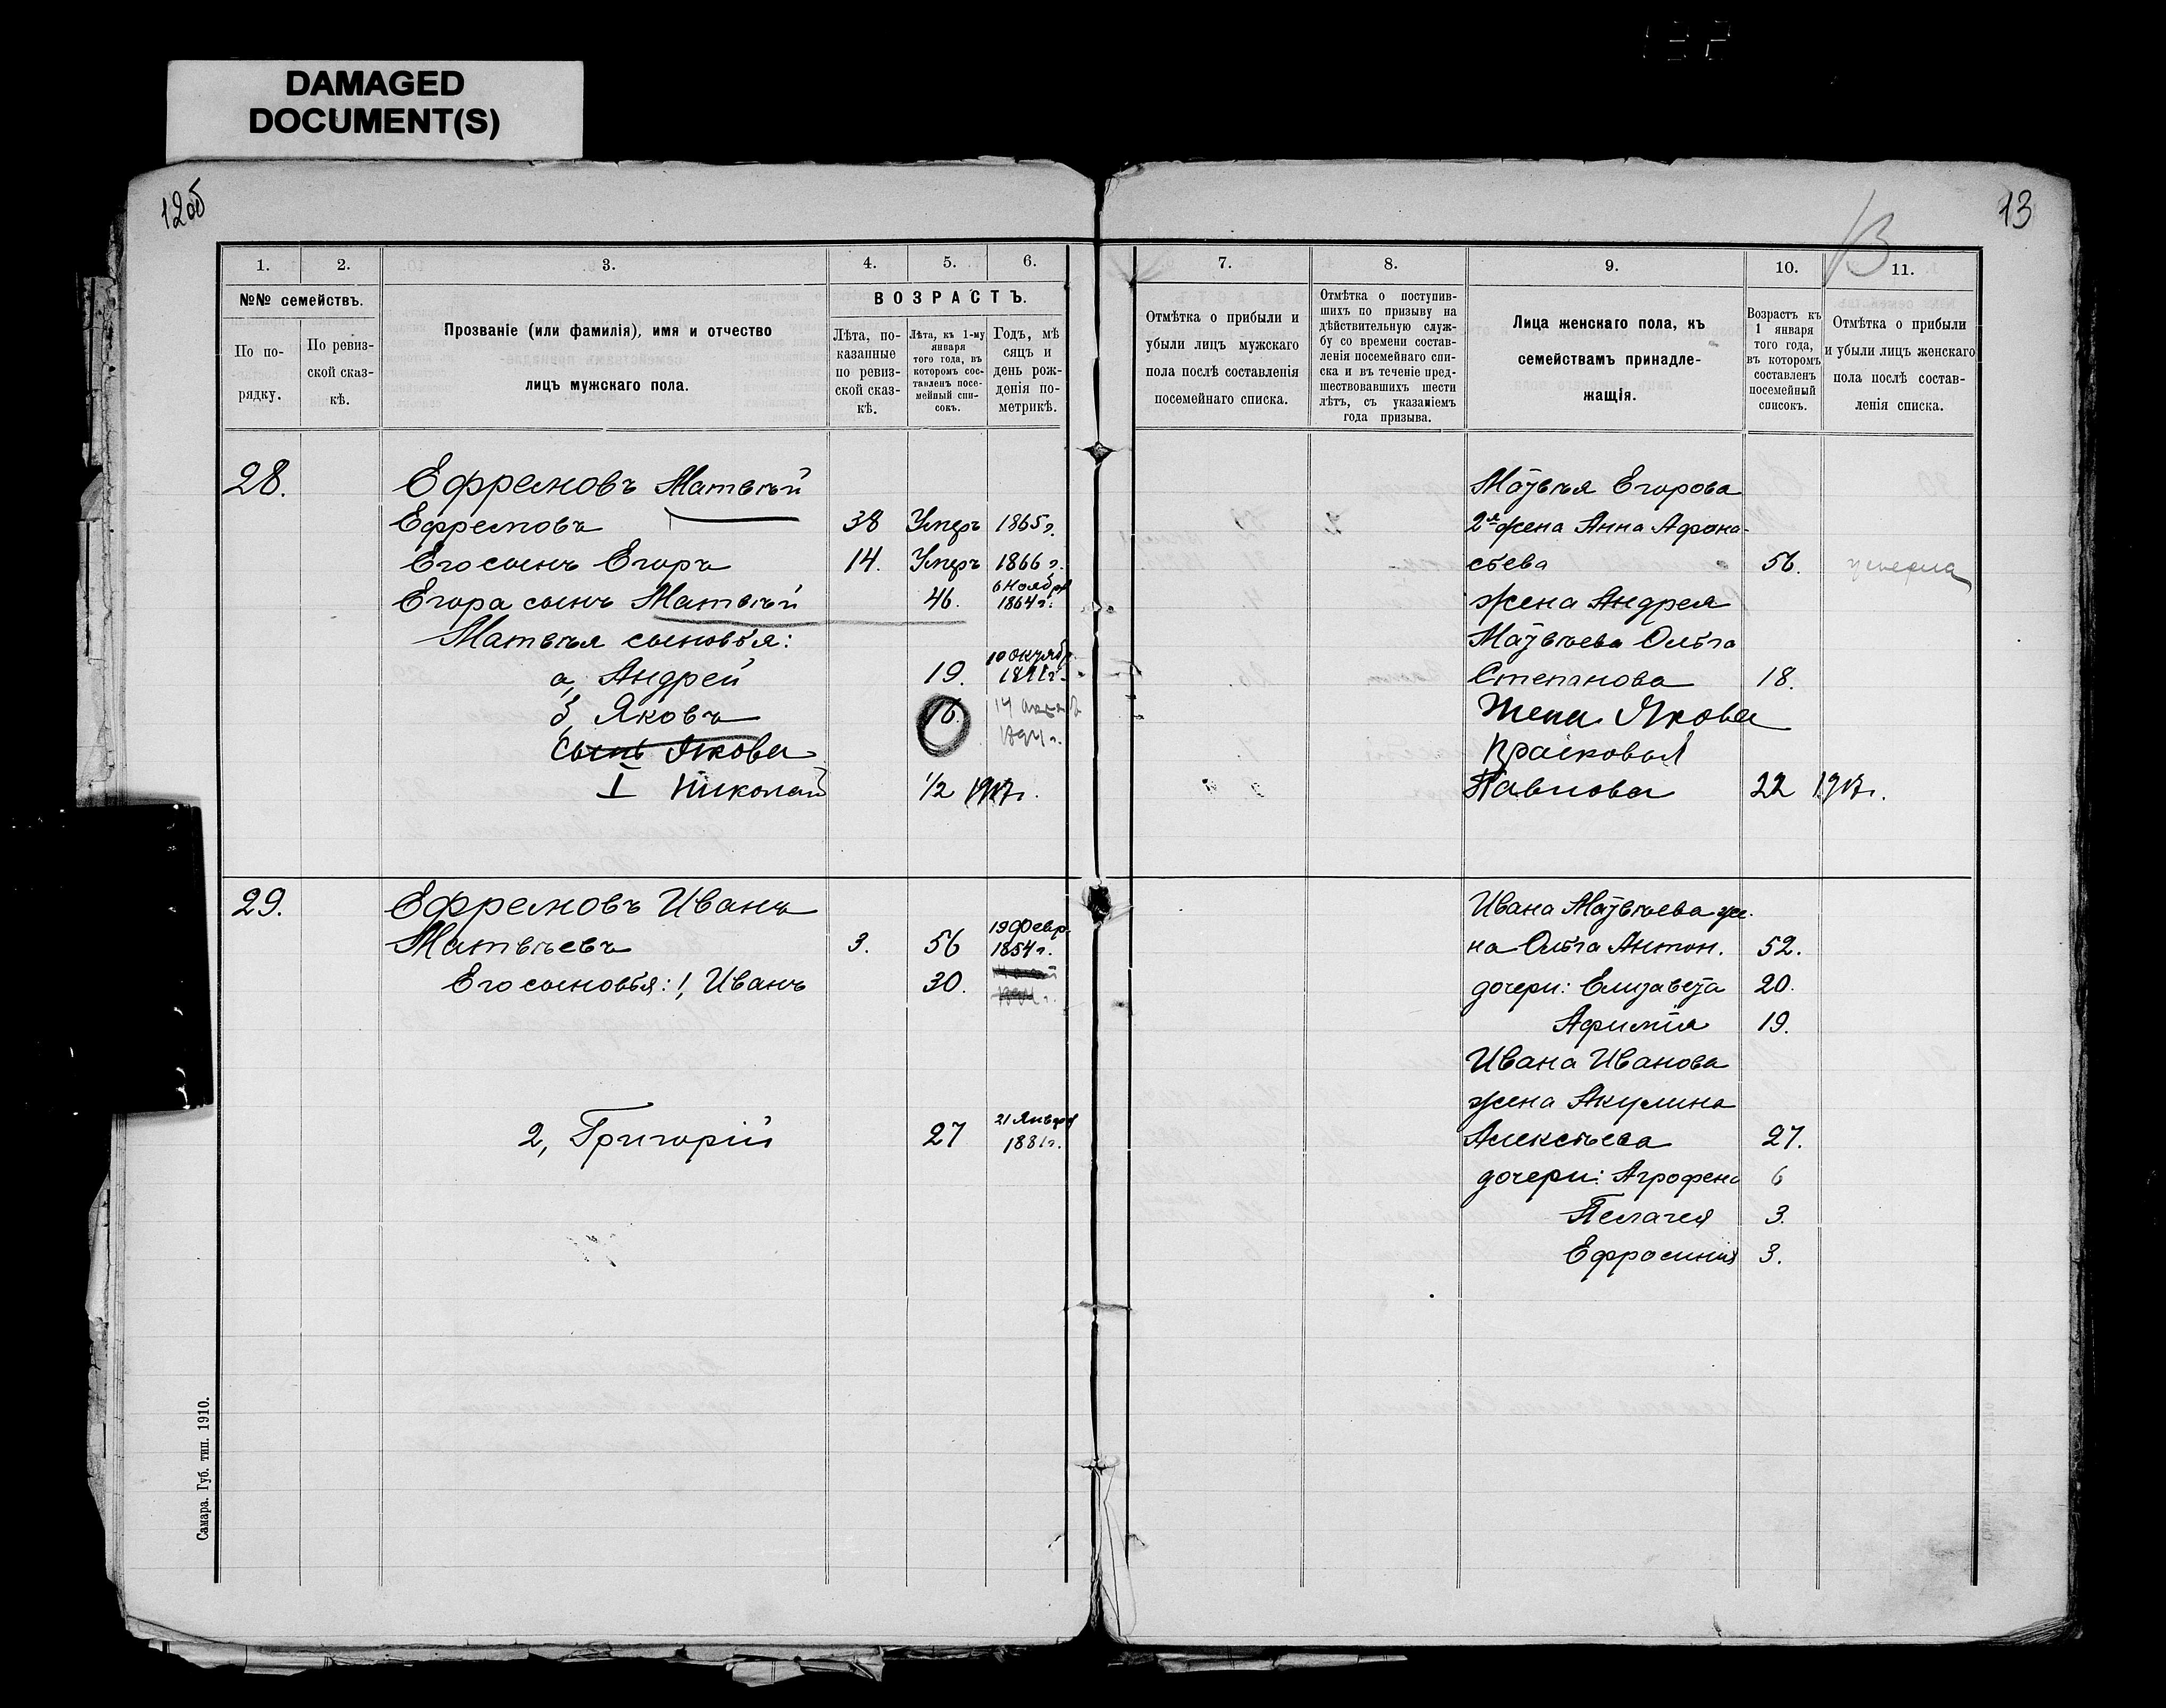 DAMAGED
DOCUMENT(S)
12об
13
13
1.
2.
3.
4.
5.
6.
№№ семействъ.
По по-
рядку.
По ревиз-
ской сказ-
кѣ.
Прозваніе (или фамилія), имя и отчество
лицъ мужскаго пола.
ВОЗРАСТЪ.
Лѣта, по-
казанные
по ревиз-
ской сказ-
кѣ.
Лѣта, къ 1-му
января
того года, въ
которомъ сос-
тавленъ посе-
мейный спи-
сокъ.
Годъ, мѣ
сяцъ и
день рож-
денія по-
метрикѣ.
28.
Ефремовъ Матвѣй
Ефремовъ 38 Умеръ 1865 г.
Его сынъ Егоръ 14. Умеръ 1866 г.
Егора сынъ Матвѣй 46. 6 Ноября 1864 г.
Матвѣя сыновья:
а, Андрей 19. 10 октябр.
б, Яковъ 16. 14
сынъ Якова
I Николай 1/2 1917 г.
29.
Ефремовъ Иванъ
Матвѣевъ 3. 56 19 Февр. 1854 г.
Его сыновья: 1, Иванъ 30.
2, Григорій 27 21 Января 1881 г.
Самара. Губ. тип. 1910.
7.
8.
9.
10.
11.
Отмѣтка о прибыли и
убыли лицъ мужскаго
пола послѣ составленія
посемейнаго списка.
Отмѣтка о поступив-
шихъ по призыву на
дѣйствительную служ-
бу со времени состав-
ленія посемейнаго спи-
ска и въ теченіе пред-
шествовавшихъ шести
лѣтъ, съ указаніемъ
года призыва.
Лица женскаго пола, къ
семействамъ принадле-
жащія.
Возрастъ къ
1 января
того года,
въ которомъ
составленъ
посемейный
списокъ.
Отмѣтка о прибыли
и убыли лицъ женскаго
пола послѣ состав-
ленія списка.
Матвѣя Егорова
2я жена Анна Афона-
сьева 56. умерла
жена Андрея
Матвѣева Ольга
Степанова 18.
Жена Якова
Прасковья
Павлова 22 1917 г.
Ивана Матвѣева же-
на Ольга Антон. 52.
дочери: Елизавета 20.
Афимія 19.
Ивана Иванова
жена Акулина
Алексѣева 27.
дочери: Агрофена 6
Пелагея 3.
Ефросинія 3.